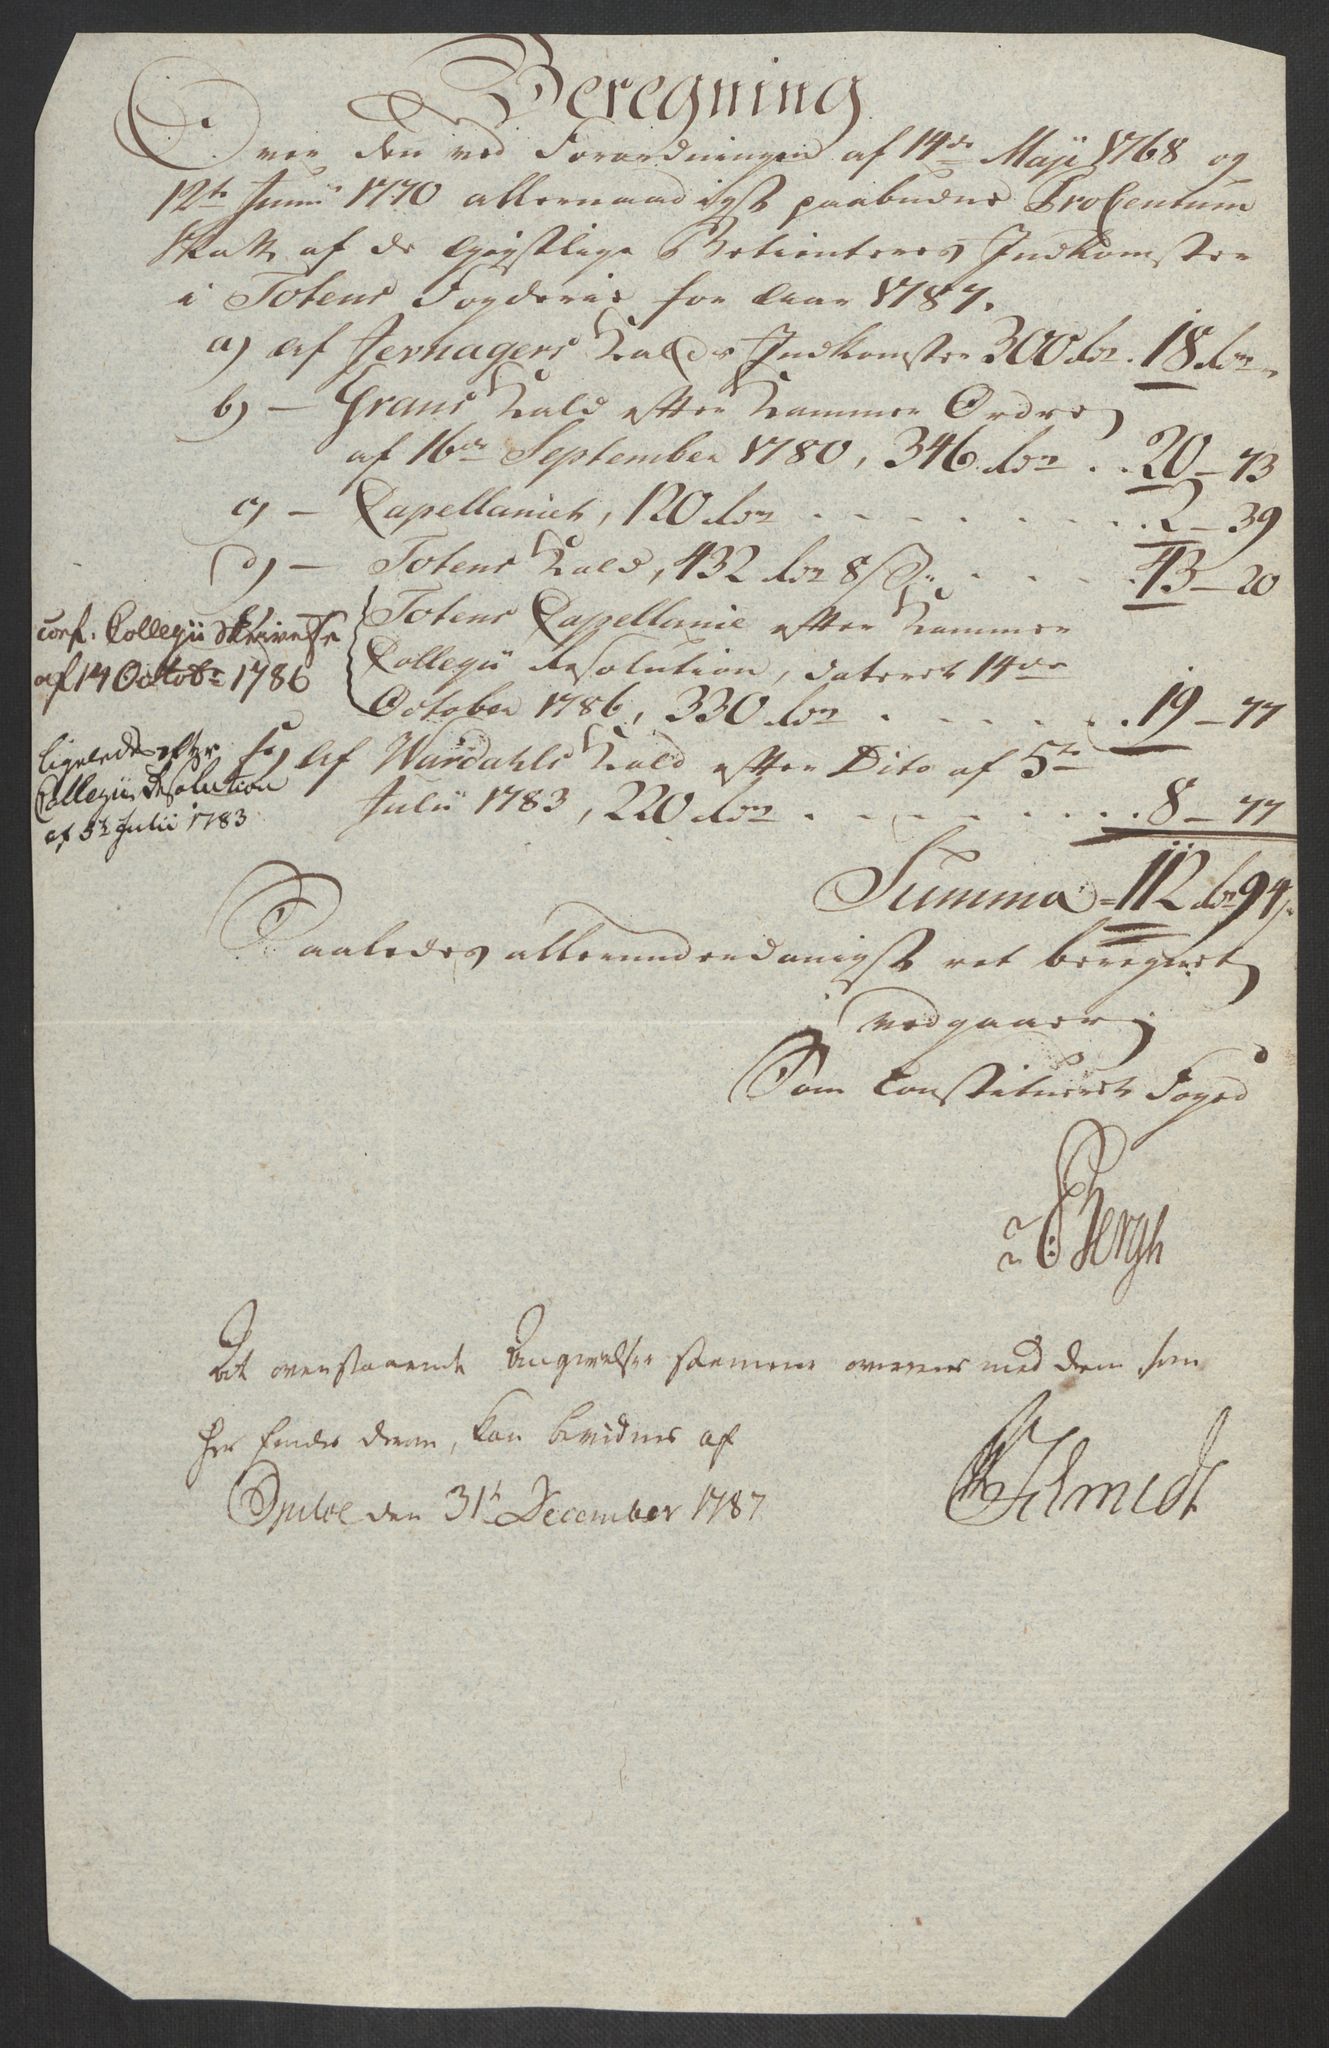 Beregning
Over den ved Forordningen af 14de Maji 1768 og
12te Junii 1770 allernaadigst paabudne Procentum
Skatt af de Geistlige Betienteres Indkomster
i Totens Fogderie for Aar 1787.
a) Af Jevnagers Kalds Indkomster 300 dr. 18 dr
b) — Grans Kald efter Kammer Ordre
af 16de September 1780, 346 dr . . 20 — 73
c) — Capellaniet, 120 dr . . . . . . . . 2 — 39
d) — Totens Kald, 432 dr 8 s . . . . . 43 — 20
Totens Capellanie efter Kammer
Collegii Resolution, dateret 14de
October 1786, 330 dr . . . . . . 19 — 77
conf. Collegii Skrivelse
af 14 Octobr 1786
f) Af Wardahls Kald efter Dito af 5te
Julii 1783, 220 dr . . . . . . . . 8 — 77
ligeledes efter
Collegii Resolution
af 5te Julii 1783
Summa = 112 dr 94 s
Saaledes allerunderdanigst ret beregnet
vedgaaer
Som Constitueret Foged
Bergh
At ovenstaaende Angivelser stemmer overens med dem som
her findes derom, kan bevidnes af
den 31te December 1787
Schmidt